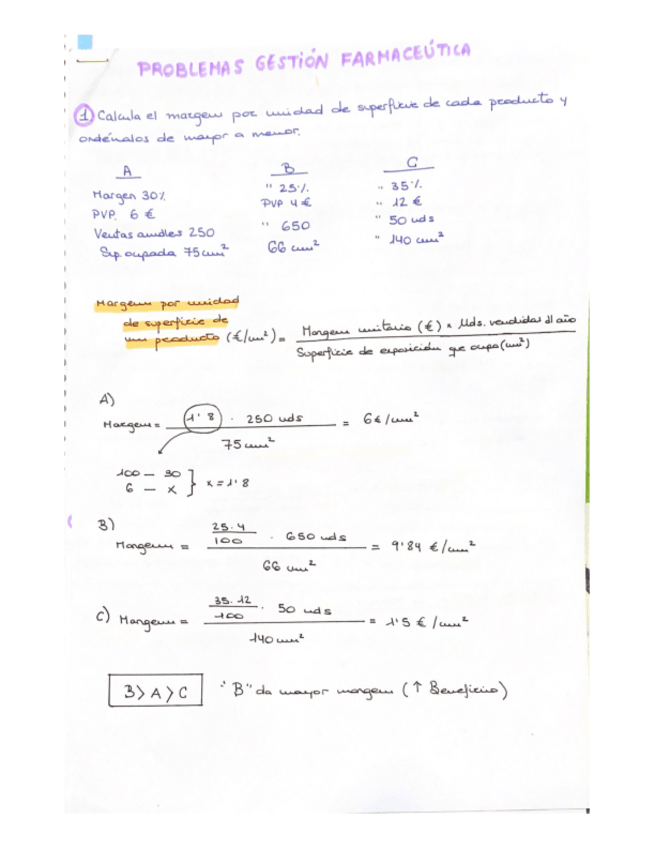 PROBLEMAS GESTIÓN FARMACEÚTICA
① Calcula el margen por unidad de superficie de cada producto y
ordénalos de mayor a menor.
A
Margen 30%
PVP. 6 €
Ventas anuales 250
Sup. ocupada 75 cm²
B
" 25%
PVP 4 €
" 650
66 cm²
C
" 35%
" 12 €
" 50 uds
" 140 cm²
Margen por unidad
de superficie de
un producto (€/cm²) = Margen unitario (€) x Uds. vendidas al año
Superficie de exposición que ocupa (cm²)
A)
Margen = 1'8 · 250 uds = 6 € / cm²
75 cm²
100 — 30
6 — x } x = 1'8
B)
Margen = 25·4/100 · 650 uds = 9'84 € / cm²
66 cm²
C) Margen = 35·12/100 · 50 uds = 1'5 € / cm²
140 cm²
B > A > C
∴ "B" da mayor margen (↑ Beneficio)